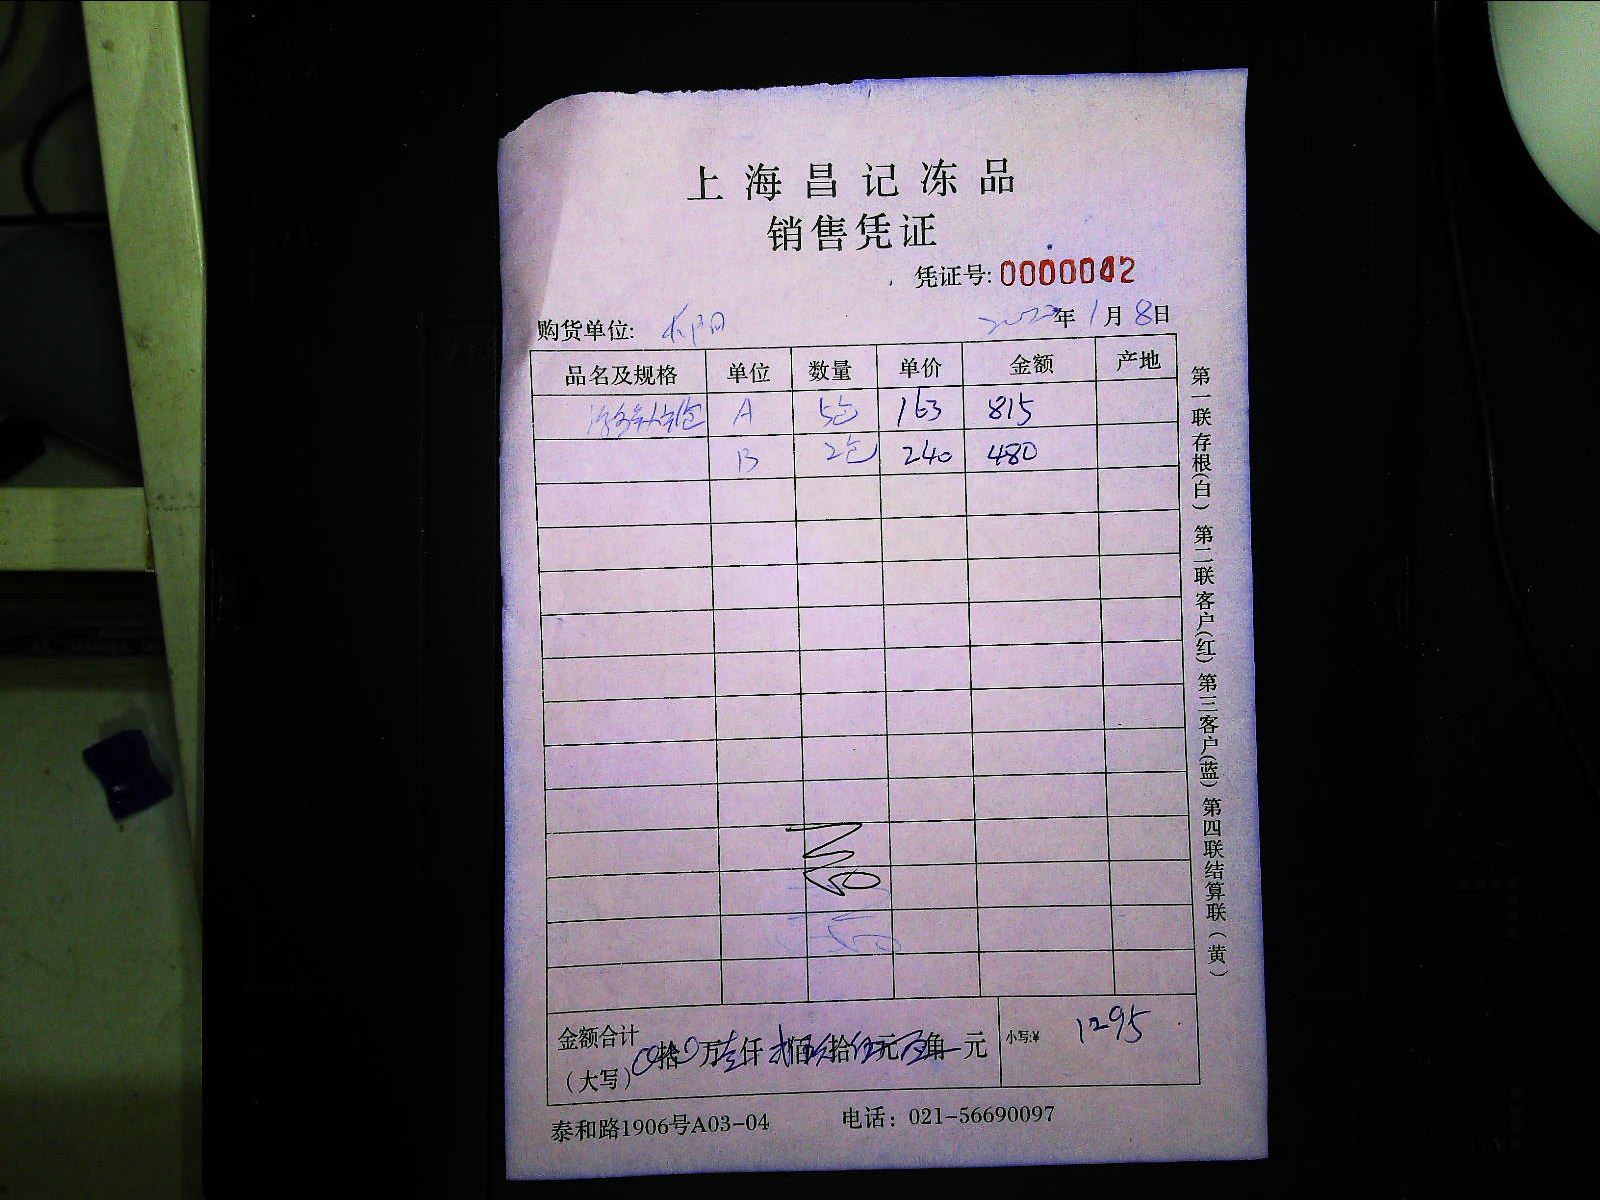 上海昌记冻品
销售凭证
凭证号: 0000042
购货单位:
2022年1月8日
品名及规格 单位 数量 单价 金额 产地
A 5包 163 815
B 2包 240 480
金额合计
(大写) 0拾0万壹仟贰佰玖拾伍元 角 元 小写:¥ 1295
泰和路1906号A03-04 电话: 021-56690097
第一联存根(白) 第二联客户(红) 第三客户(蓝) 第四联结算联(黄)